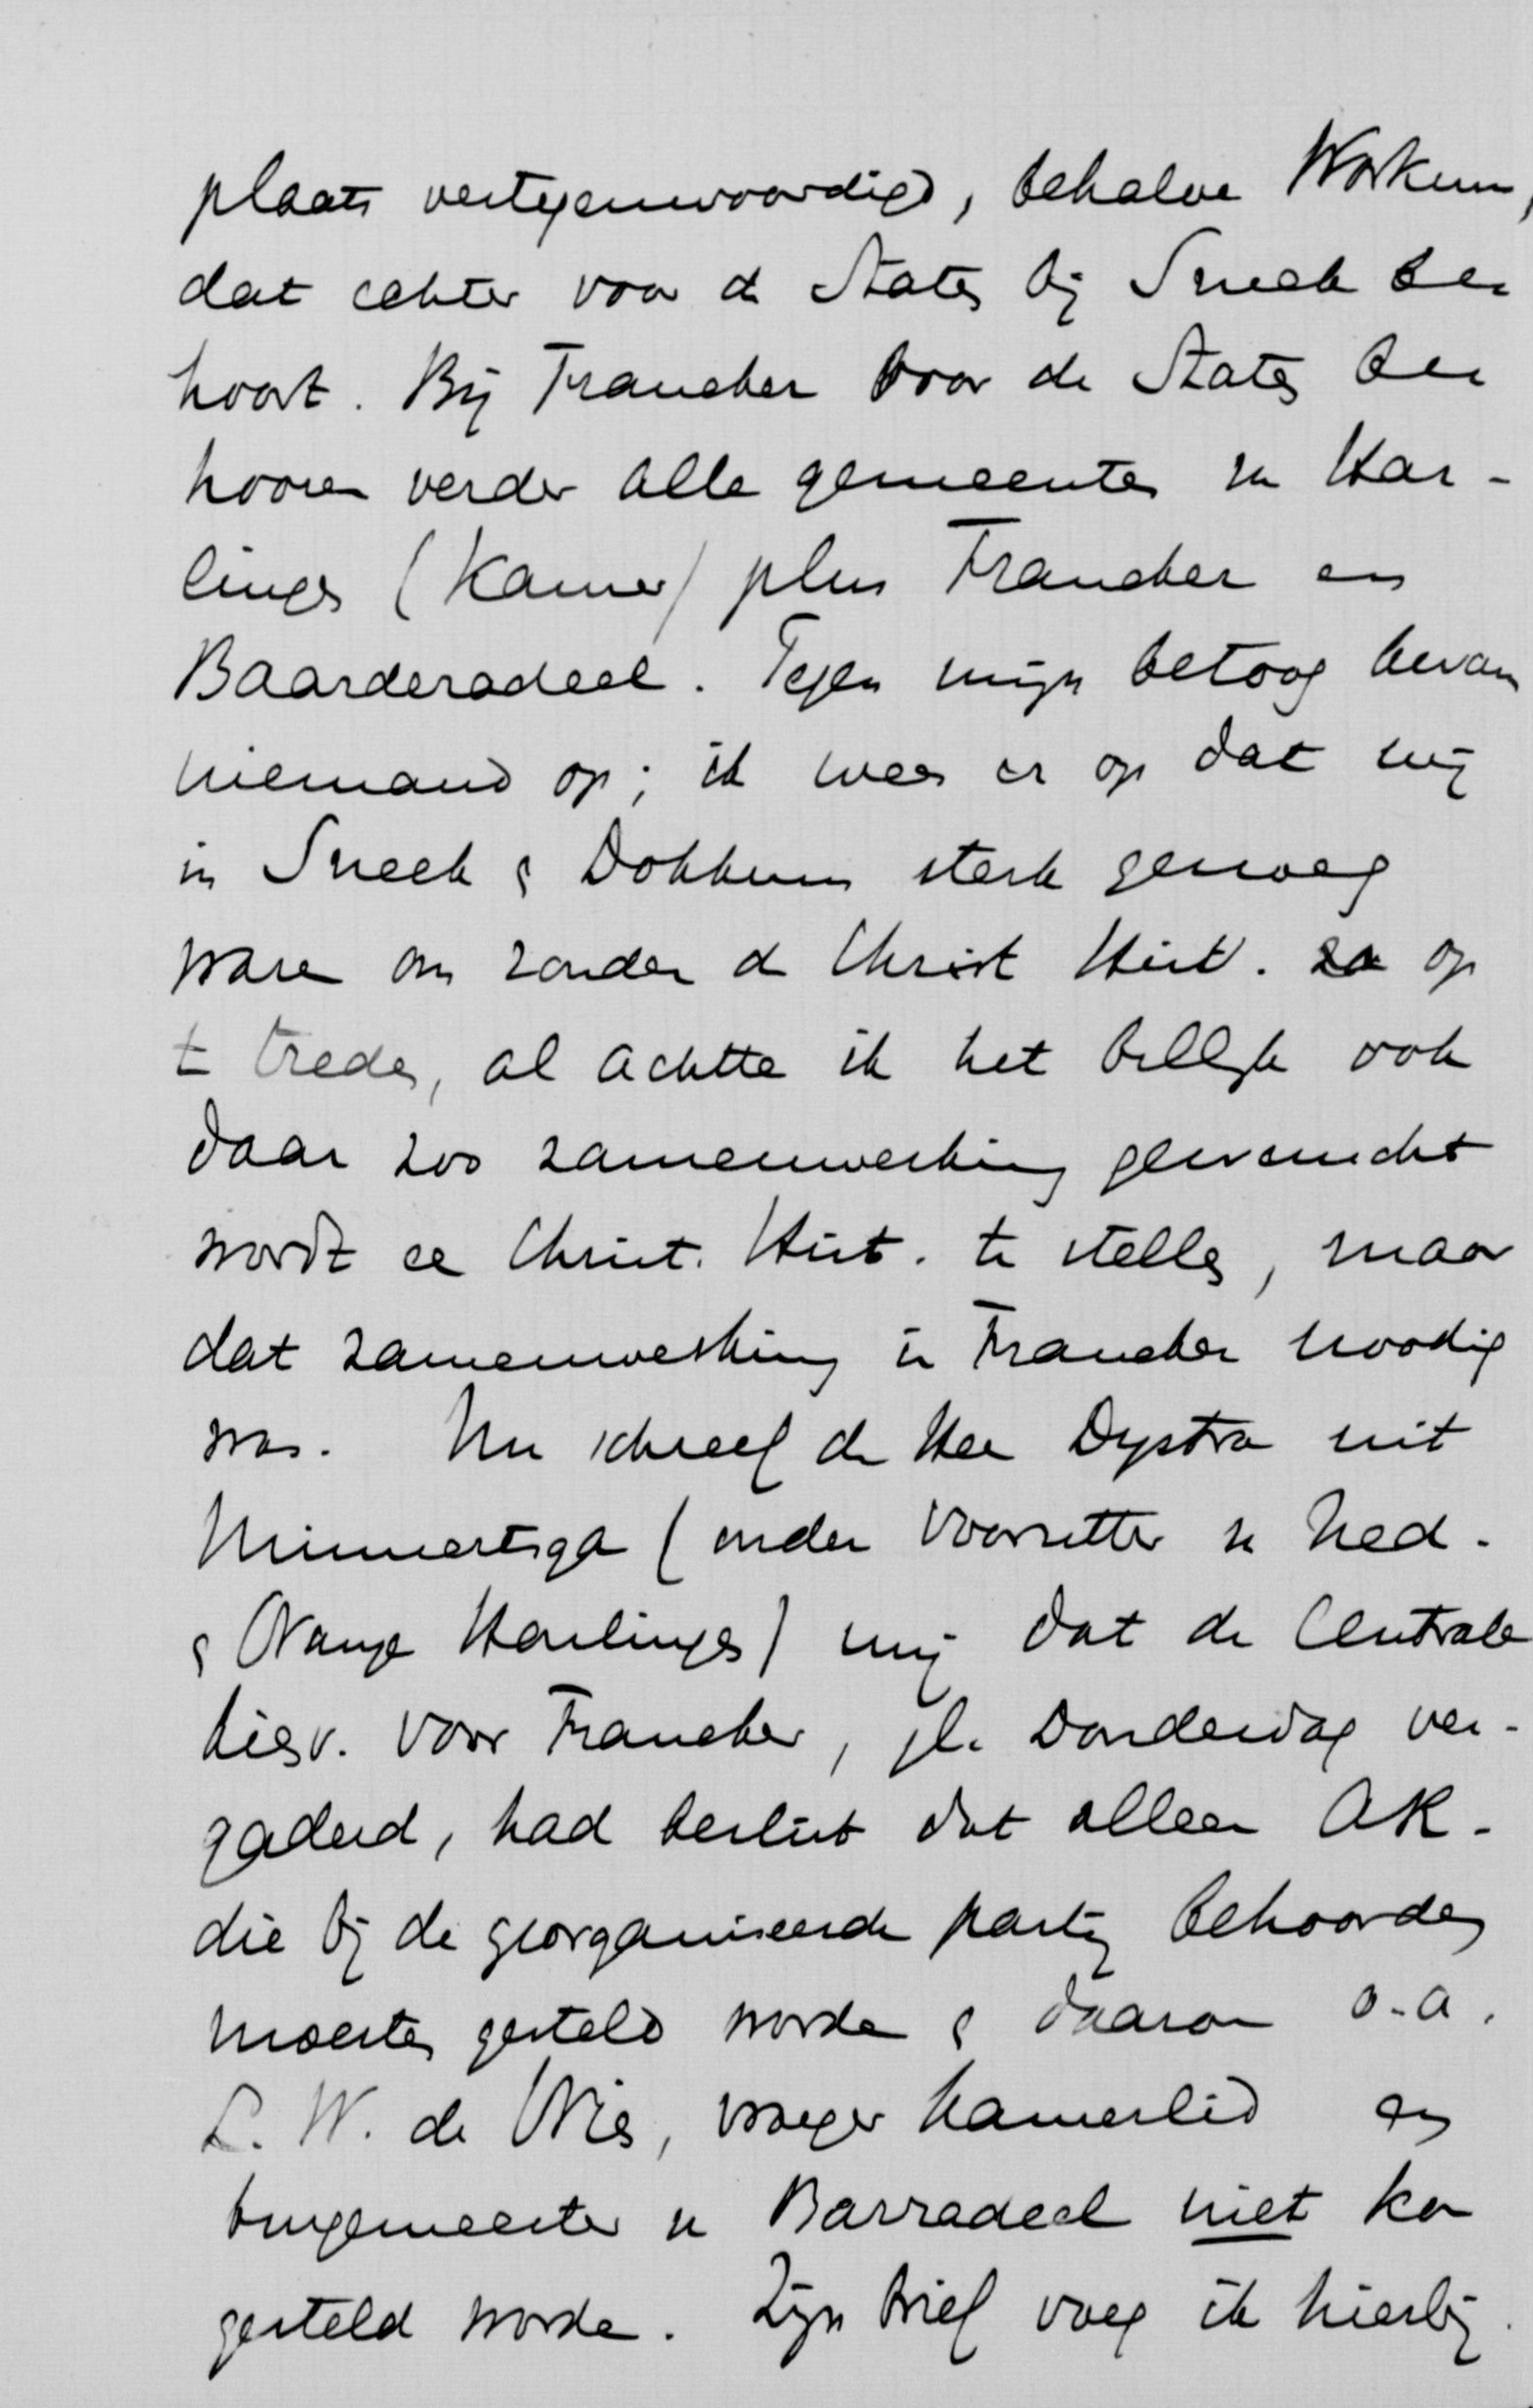 plaats vertegenwoordigd, behalve Workum,
dat echter voor de Staten bij Sneek be
hoort. Bij Franeker voor de Staten be
hooren verder alle gemeenten v. Har-
lingen (Kamer) plus Franeker en
Baarderadeel. Tegen mijn betoog kwam
niemand op; ik wees er op dat wij
in Sneek & Dokkum sterk genoeg
waren om zonder de Christ Hist. op
te treden, al achtte ik het billijk ook
daar zoo samenwerking gewenscht
wordt ee Christ. Hist. te stellen, maar
dat samenwerking in Franeker noodig
was. Nu schreef de Heer Dijstra uit
Minnertsga (onder voorzitter v. Ned.
& Oranje Harlingen) mij dat de Centrale
kiesv. voor Franeker, jl. Donderdag ver-
gaderd, had beslist dat alleen AR.
die bij de georganiseerde partij behoorden
moesten gesteld worden & daarom o.a.
L. W. de Vries, vroeger kamerlid en
burgemeester v. Barradeel niet kon
gesteld worden. Zijn brief voeg ik hierbij.